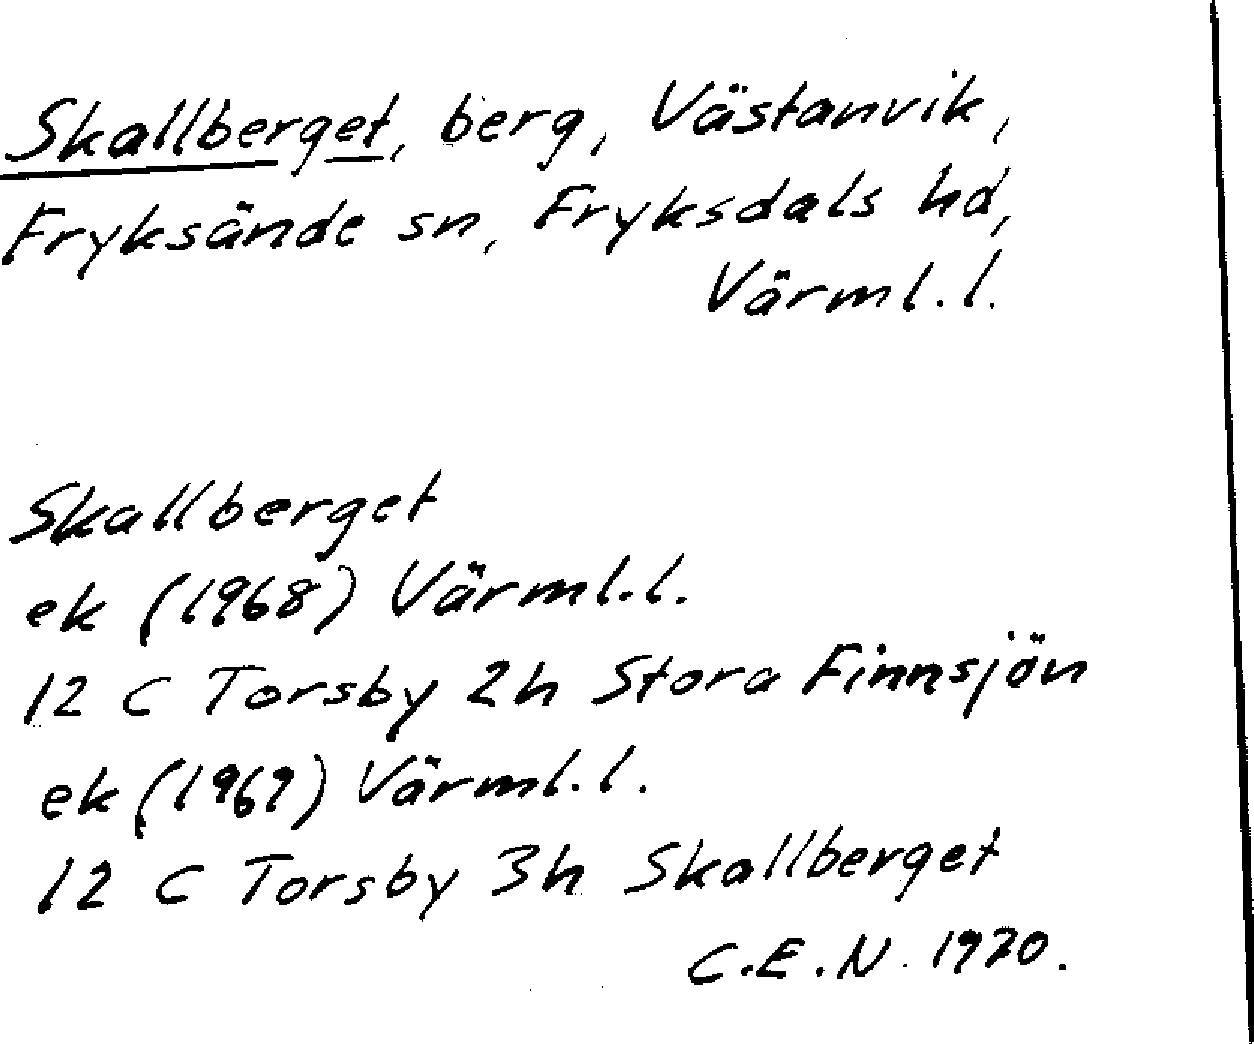 Skallberget, berg, Västanvik,
Fryksände sn, Fryksdals hd,
Värml.l.
Skallberget
ek (1968) Värml.l.
12 C Torsby 2h Stora Finnsjön
ek (1969) Värml.l.
12 C Torsby 3h Skallberget
C.E.N. 1970.